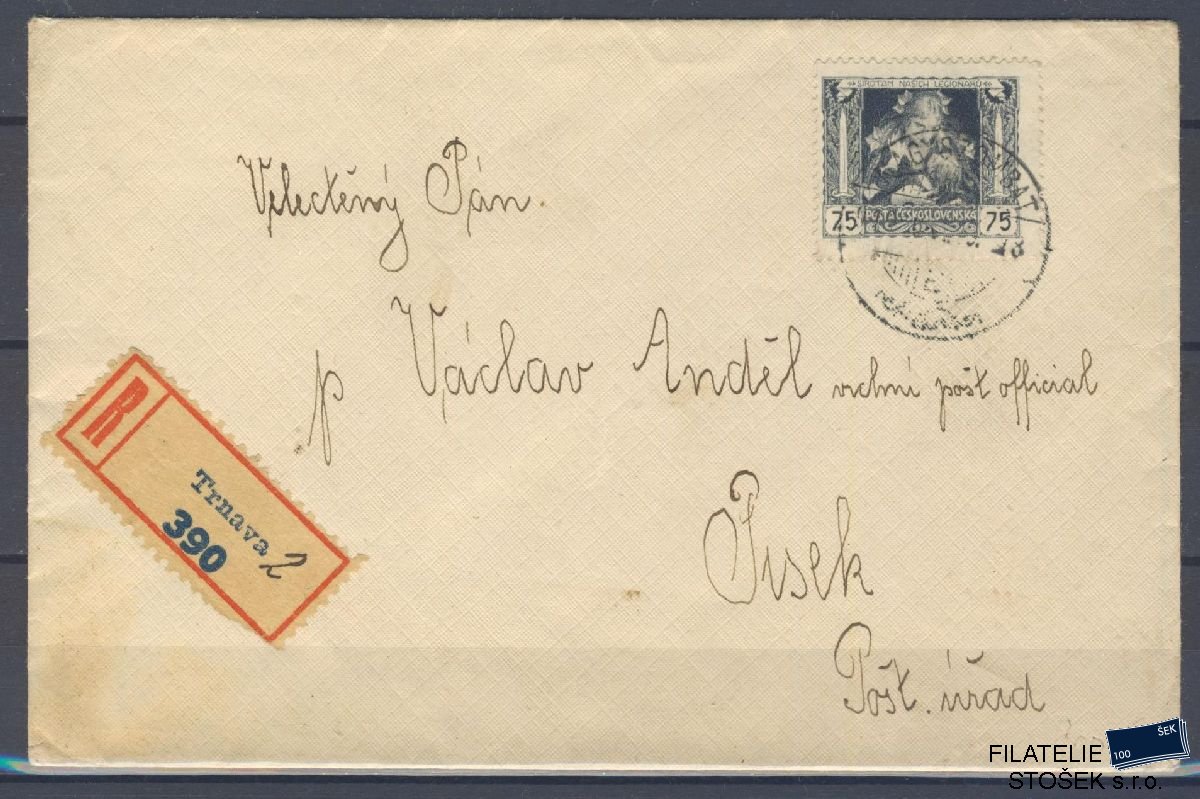 SIROTÁM NAŠICH LEGIONÁŘŮ
75 POŠTA ČESKOSLOVENSKÁ 75
Velectěný Pán
p Václav Anděl vrchní pošt official
R
Trnava 2
390
Pisek
Pošt. úřad
FILATELIE
STOŠEK s.r.o.
100 ŠEK